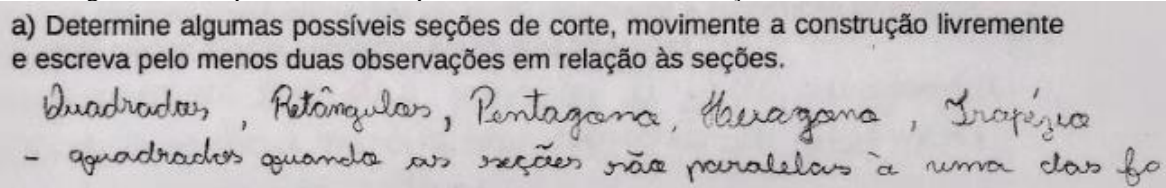 a) Determine algumas possíveis seções de corte, movimente a construção livremente
e escreva pelo menos duas observações em relação às seções.
Quadrados, Retângulos, Pentagono, Hexagono, Trapézio
- quadrados quando as seções são paralelas à uma das